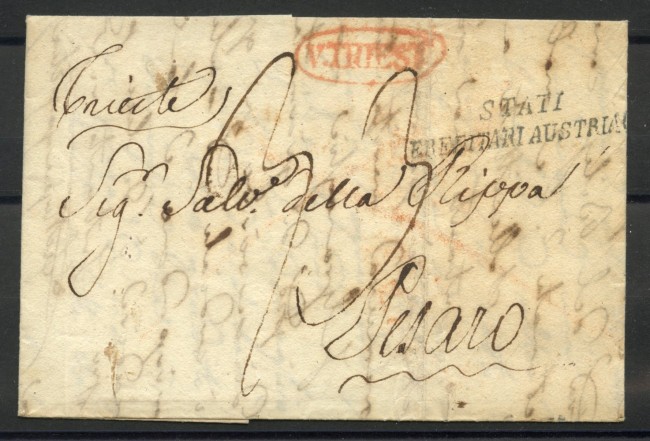 V.TRIEST
STATI
EREDITARI AUSTRIAC
Trieste
Sig.r Salv.e della Rippa
Pesaro